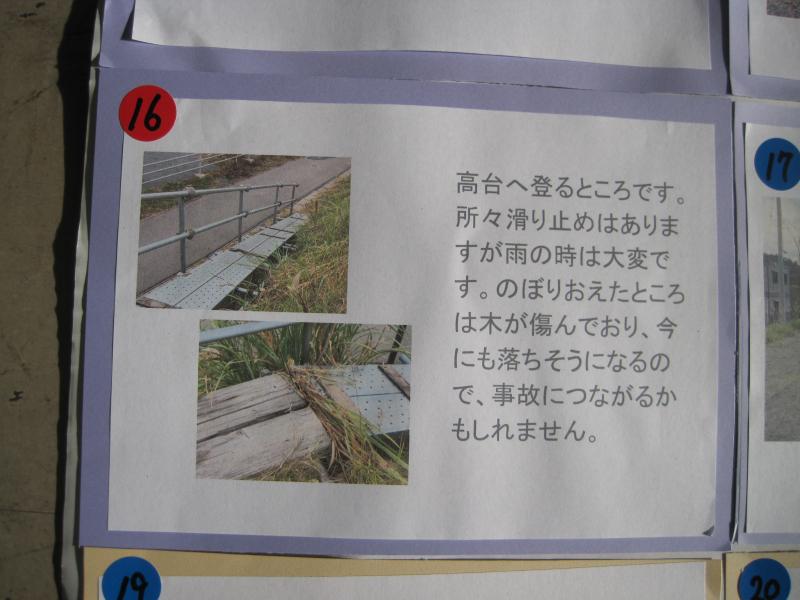 16
高台へ登るところです。
所々滑り止めはありま
すが雨の時は大変で
す。のぼりおえたところ
は木が傷んでおり、今
にも落ちそうになるの
で、事故につながるか
もしれません。
17
19
20